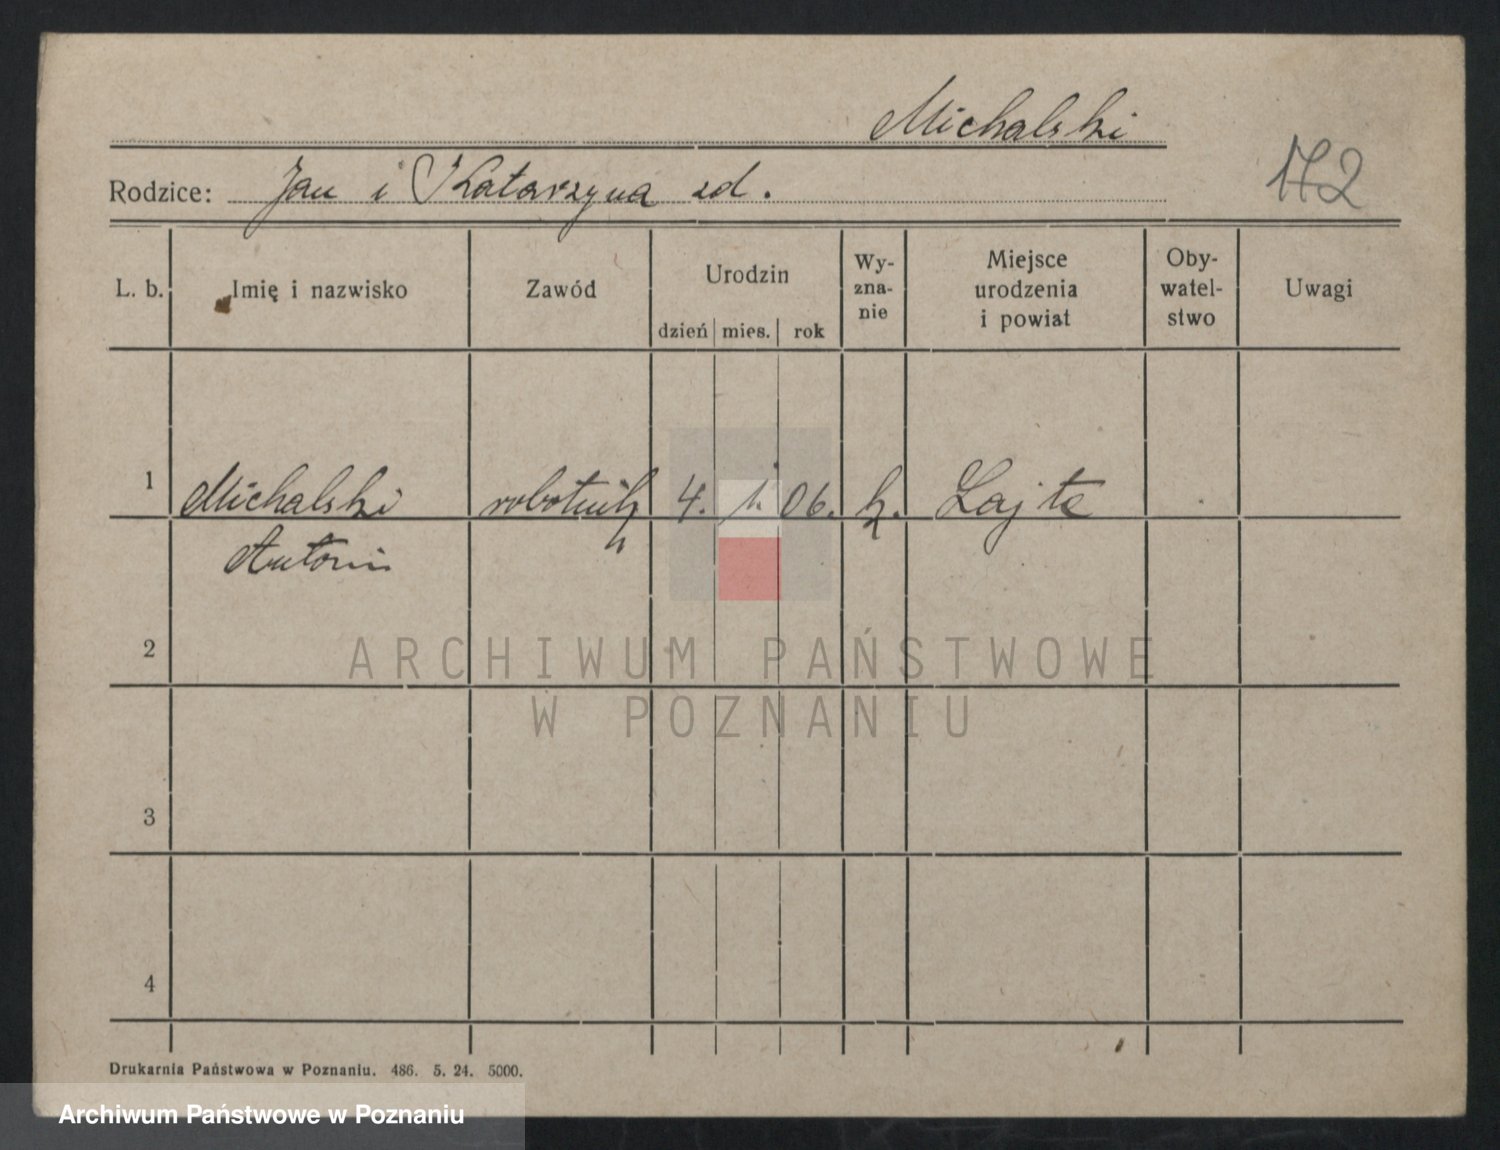 Michalski
172
Rodzice: Jan i Katarzyna zd.
L. b. Imię i nazwisko Zawód Urodzin dzień mies. rok Wy-zna-nie Miejsce urodzenia i powiat Oby-watel-stwo Uwagi
1 Michalski robotnik 4. 1. 06. k. Lajte
Antoni
2
ARCHIWUM PAŃSTWOWE
W POZNANIU
3
4
Drukarnia Państwowa w Poznaniu. 486. 5. 24. 5000.
Archiwum Państwowe w Poznaniu